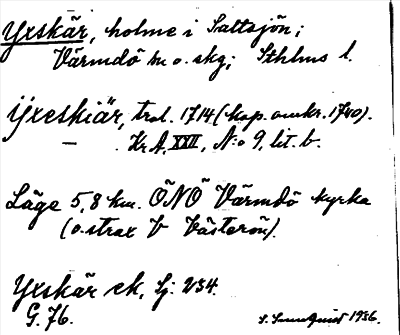 Yxskär, holme i Saltsjön;
Värmdö sn o. skg; Sthlms l.
Ÿxeskiär, trol. 1714 (kop. omkr. 1740).
— Kr A, XXII, N:o 9, lit. b.
Läge 5,8 km. ÖNÖ Värmdö kyrka
(o. strax V Västerön).
Yxskär ek. Sj: 234.
G. 76.
1936.